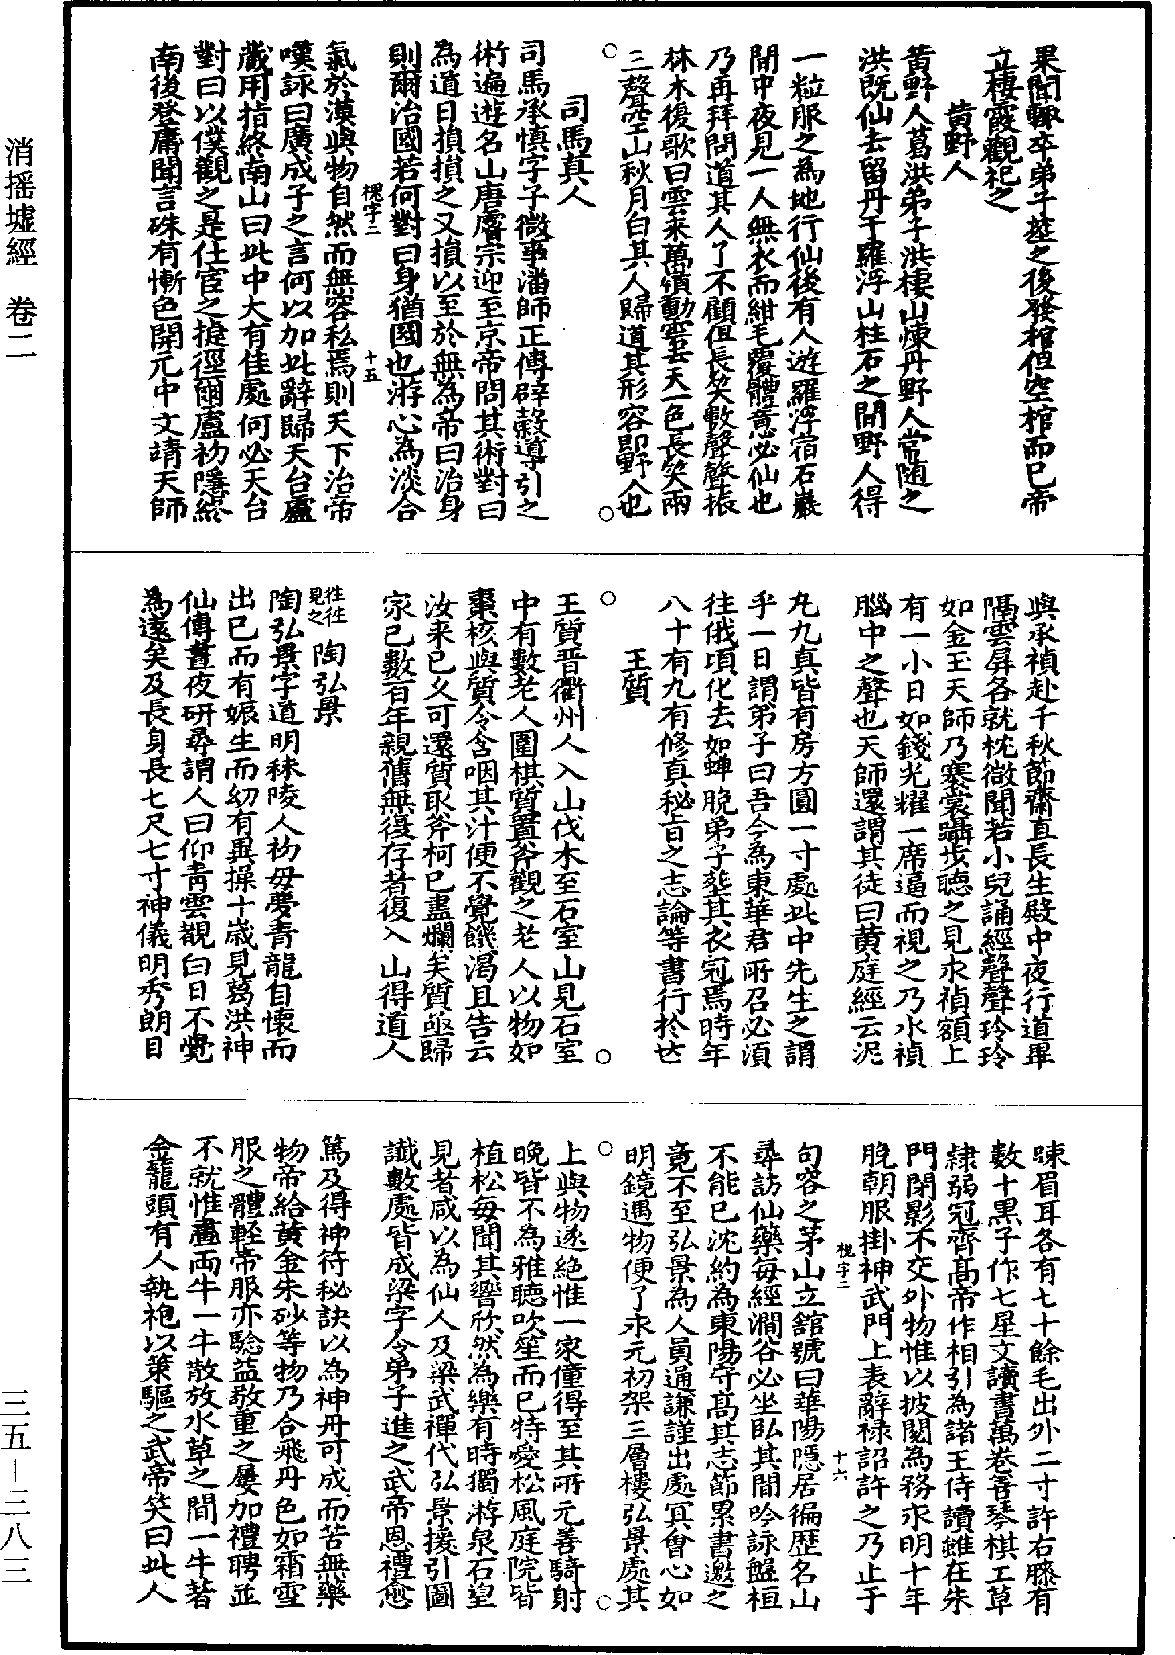 消摇墟經　卷二
果聞輙卒弟子塟之後發棺但空棺而已帝
立棲霞觀祀之
黄野人
黄野人葛洪弟子洪棲山煉丹野人常随之
洪既仙去留丹于羅浮山柱石之間野人得
一粒服之為地行仙後有人遊羅浮宿石巖
間中夜見一人無衣而紺毛覆體意必仙也
乃再拜問道其人了不顧但長笑數聲聲振
林木後歌曰雲来萬嶺動雲去天一色長笑兩
三聲空山秋月白其人歸道其形容即野人也
司馬真人
司馬承慎字子微事潘師正傳辟榖導引之
術遍遊名山唐睿宗迎至京帝問其術對曰
為道日損損之又損以至於無為帝曰治身
則爾治國若何對曰身猶國也游心為淡合
槐字二　十五
氣於漠與物自然而無容私焉則天下治帝
嘆詠曰廣成子之言何以加此辭歸天台盧
蔵用指終南山曰此中大有佳處何必天台
對曰以僕觀之是仕宦之捷徑爾盧初隱終
南後登庸聞言殊有慚色開元中文靖天師
與承禎赴千秋節齋直長生殿中夜行道畢
隔雲屏各就枕微聞若小兒誦經聲聲玲玲
如金玉天師乃褰裳躡步聽之見承禎額上
有一小日如錢光耀一席逼而視之乃承禎
腦中之聲也天師還謂其徒曰黄庭經云泥
丸九真皆有房方圓一寸處此中先生之謂
乎一日謂弟子曰吾今為東華君所召必須
往俄頃化去如蟬脱弟子塟其衣冠焉時年
八十有九有修真秘旨之志論等書行於世
王質
王質晋衢州人入山伐木至石室山見石室
中有數老人圍棋質置斧觀之老人以物如
棗核與質令含咽其汁便不覺饑渴且告云
汝来已久可還質取斧柯已盡爛矣質亟歸
家已數百年親舊無復存者復入山得道人
往往見之
陶弘景
陶弘景字道明秣陵人初母夢青龍自懷而
出已而有娠生而幼有異操十歲見葛洪神
仙傳晝夜研尋謂人曰仰青雲覩白日不覺
為遠矣及長身長七尺七寸神儀明秀朗目
踈眉耳各有七十餘毛出外二寸許右膝有
數十黒子作七星文讀書萬卷善琴棋工草
隷弱冠齊髙帝作相引為諸王侍讀雖在朱
門閉影不交外物惟以披閲為務永明十年
脱朝服掛神武門上表辭禄詔許之乃止于
槐字二　十六
句容之茅山立舘號曰華陽隱居徧歴名山
尋訪仙藥每經澗谷必坐卧其間吟詠盤桓
不能已沈約為東陽守髙其志節累書邀之
竟不至弘景為人員通謙謹出處冥會心如
明鏡遇物便了永元初架三層樓弘景處其
上與物遂絶惟一家僮得至其所元善騎射
晚皆不為雅聽吹笙而已特愛松風庭院皆
植松每聞其響欣然為樂有時獨游泉石望
見者咸以為仙人及梁武禪代弘景援引圖
讖數處皆成梁字令弟子進之武帝恩禮愈
篤及得神符秘訣以為神丹可成而苦無藥
物帝給黄金朱砂等物乃合飛丹色如霜雪
服之體輕帝服亦驗益敬重之屢加禮聘並
不就惟畫両牛一牛散放水草之間一牛著
金籠頭有人執袍以策驅之武帝笑曰此人
三五—三八三